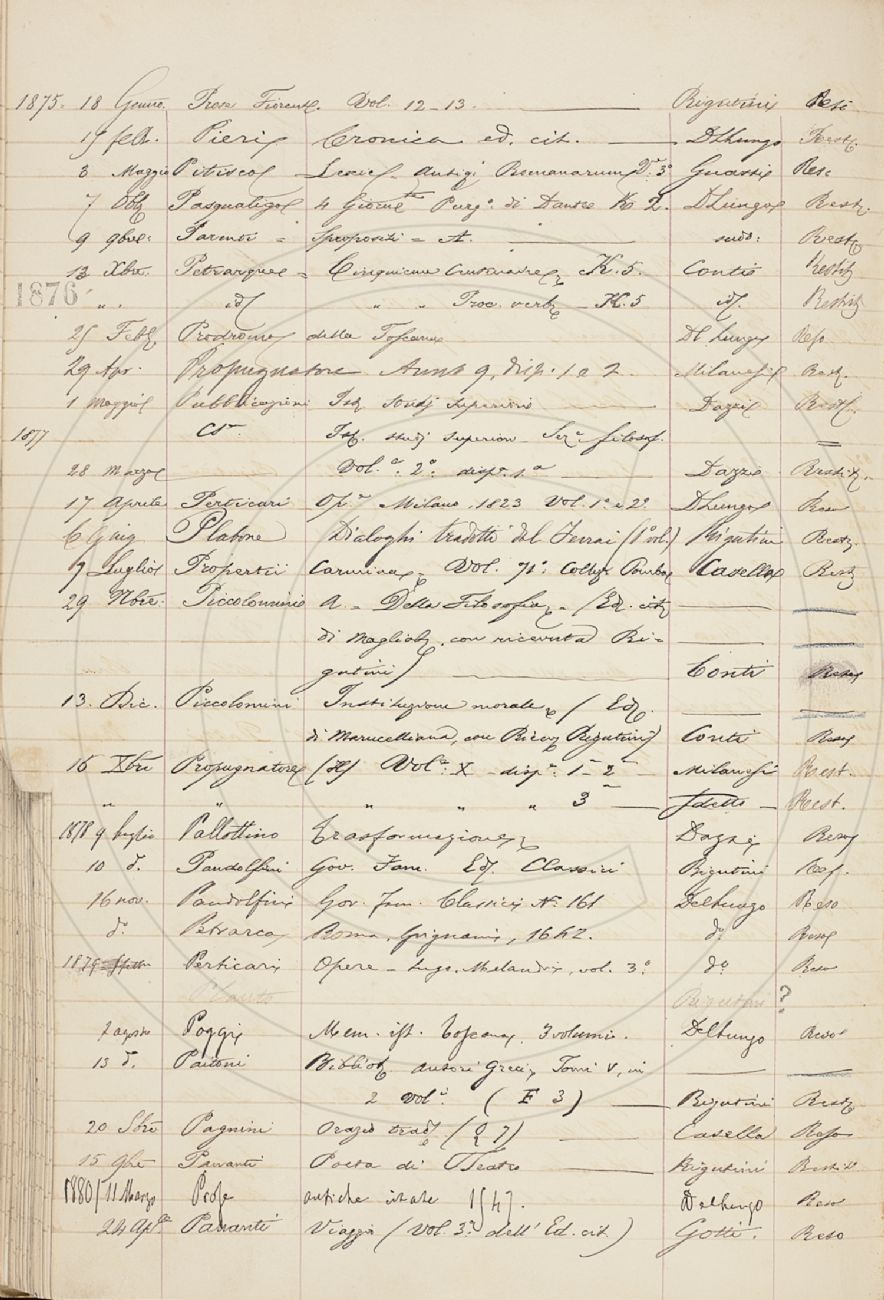 1875. 18 Genno. Prose Fiorent. Vol. 12-13. Rigutini Reso
15 febb. Pieri Cronica ed. cit. DLungo Rest.
3 Maggio Pitisco Lexic. Antiq. Romanarum T. 3º Guasti Reso
7 Pasqualigo 4 Giorn. Purgo. di Dante K 2. DLungo Rest.
9 9bre. Spropositi = A. sudo. Rest.
13 Xbre. Petrarque = K. 5. Conti Restit.
1876
" . id. " " Proc. verb. K. 5 id. Restit.
25 Febb. Prodromo della Toscana Dl Lungo Reso
29 Apr. Propugnatore Anno 9, disp. 1 e 2 Milanesi Rest.
1 Maggio Pubblicazioni Ist. Studj Superiori Dazzi Rest.
1877 Ist. studj Superiori Sez. filosof. =
28 Marzo Vol. 2º disp. 1a Dazzi Restit.
17 Aprile Perticari Op. Milano, 1823 Vol. 1º e 2º DLungo Reso
6 Giug Platone Dialoghi tradotti dal Ferrai (1º vol.) Rigutini Rest.
7 Luglio Propertii Carmina Vol. 71º Collez. Pomba Casella Rest.
29 9bre. Piccolomini A. - Della Filosofia - (Ed. cit.
di Magliab. con ricevuta Ri=
gutini) Conti Reso
13. Dic. Piccolomini Instituzione morale (Ed.
di Marucelliana, con Ricev. Rigutini) Conti Reso
16 Xbre Propugnatore (H) Vol. X - disp. 1a 2a Milanesi Rest.
" " " " " 3a fdetto Rest.
1878 9 luglio Pallottino Trasformazione Dazzi Reso
10 d. Pandolfini Gov. Fam. Ed. Classici Rigutini Reso.
16 nov. Pandolfini Gov. fam. Classici No. 161 Dellungo Reso
do. Petrarca Roma, Grignani, 1642. do. Reso
1879 Perticari Opere - Lugo. Melandri, vol. 3º do Reso
Plauto Rigutini ?
2 agosto Poggi Mem. ist. Toscana, 3 volumi. Dellungo Reso
13 d. Paitoni Bibliot. autori Greci, Tomi V, in
2 vol. (E 3) Rigutini Rest.
20 8bre Pagnini Orazio trad. (Q 7) Casella Reso
15 9bre Pananti Poeta di Teatro Rigutini Restit.
1880/11 Marzo Prose antiche ital. 1547. Dellungo Reso
24 Aple Pananti Viaggi (Vol. 3º dell' Ed. cit.) Gotti. Reso